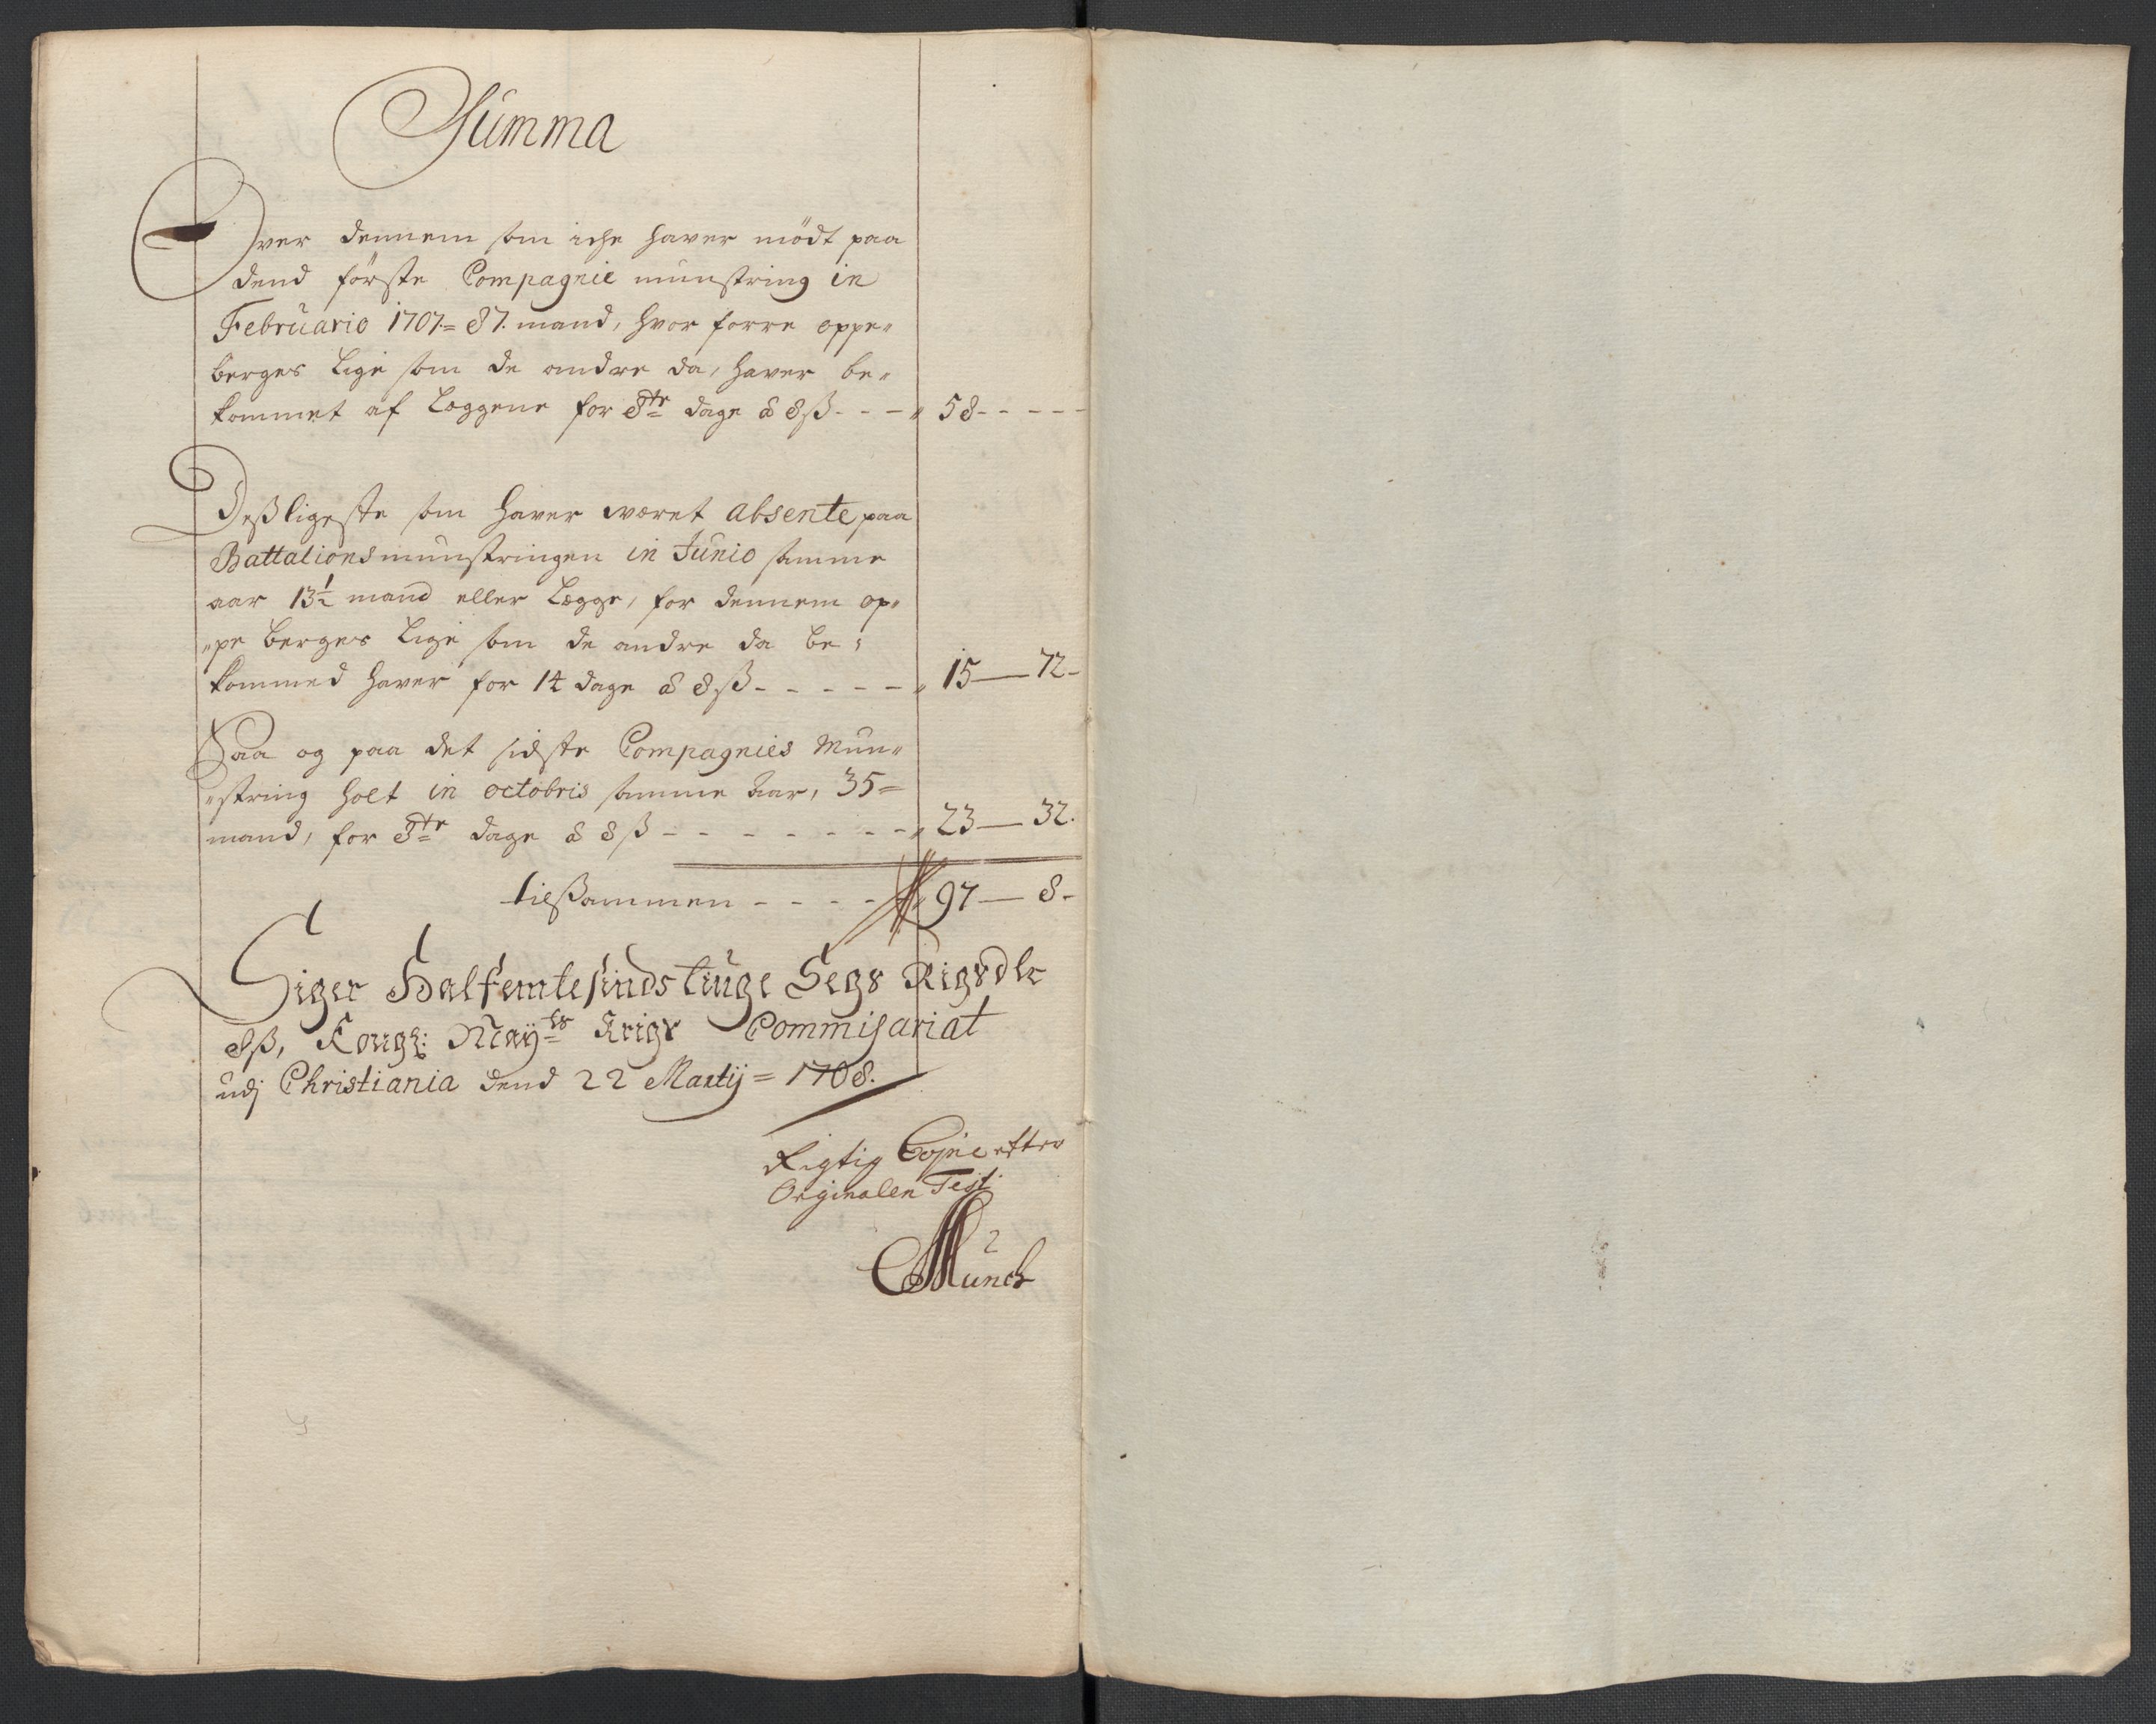 Summa
Over dennem som iche haver mödt paa
dend förste Compagnie munstring in
Februario 1707 = 87. mand, hvor forre oppe„
berges lige som de andre da, haver be„
kommet af Leggene for 8te dage à 8 ß - - - „ 58 - - - - -
Desßligeste som haver weret absente paa
Battalions munstringen in Junio samme
aar 13½ mand eller Legge, for dennem op„
„pe berges lige som de andre da be„
kommed haver for 14 dage à 8 ß - - - - - „ 15 — 72 -
Saa og paa det sidste Compagnies Mun„
„string holt in octobris samme Aar, 35 =
mand, for 8te dage à 8 ß - - - - - - - - „ 23 — 32.
tilßammen - - - - 97 — 8 -
Siger Halfemtesinds tiuge Segs Rigsdlr
8 ß, Kongl: Mayts Krigs Commisariat
udj Christiania dend 22 Martij = 1708.
Rigtig Copie efter
Orginalen Test.
Münch